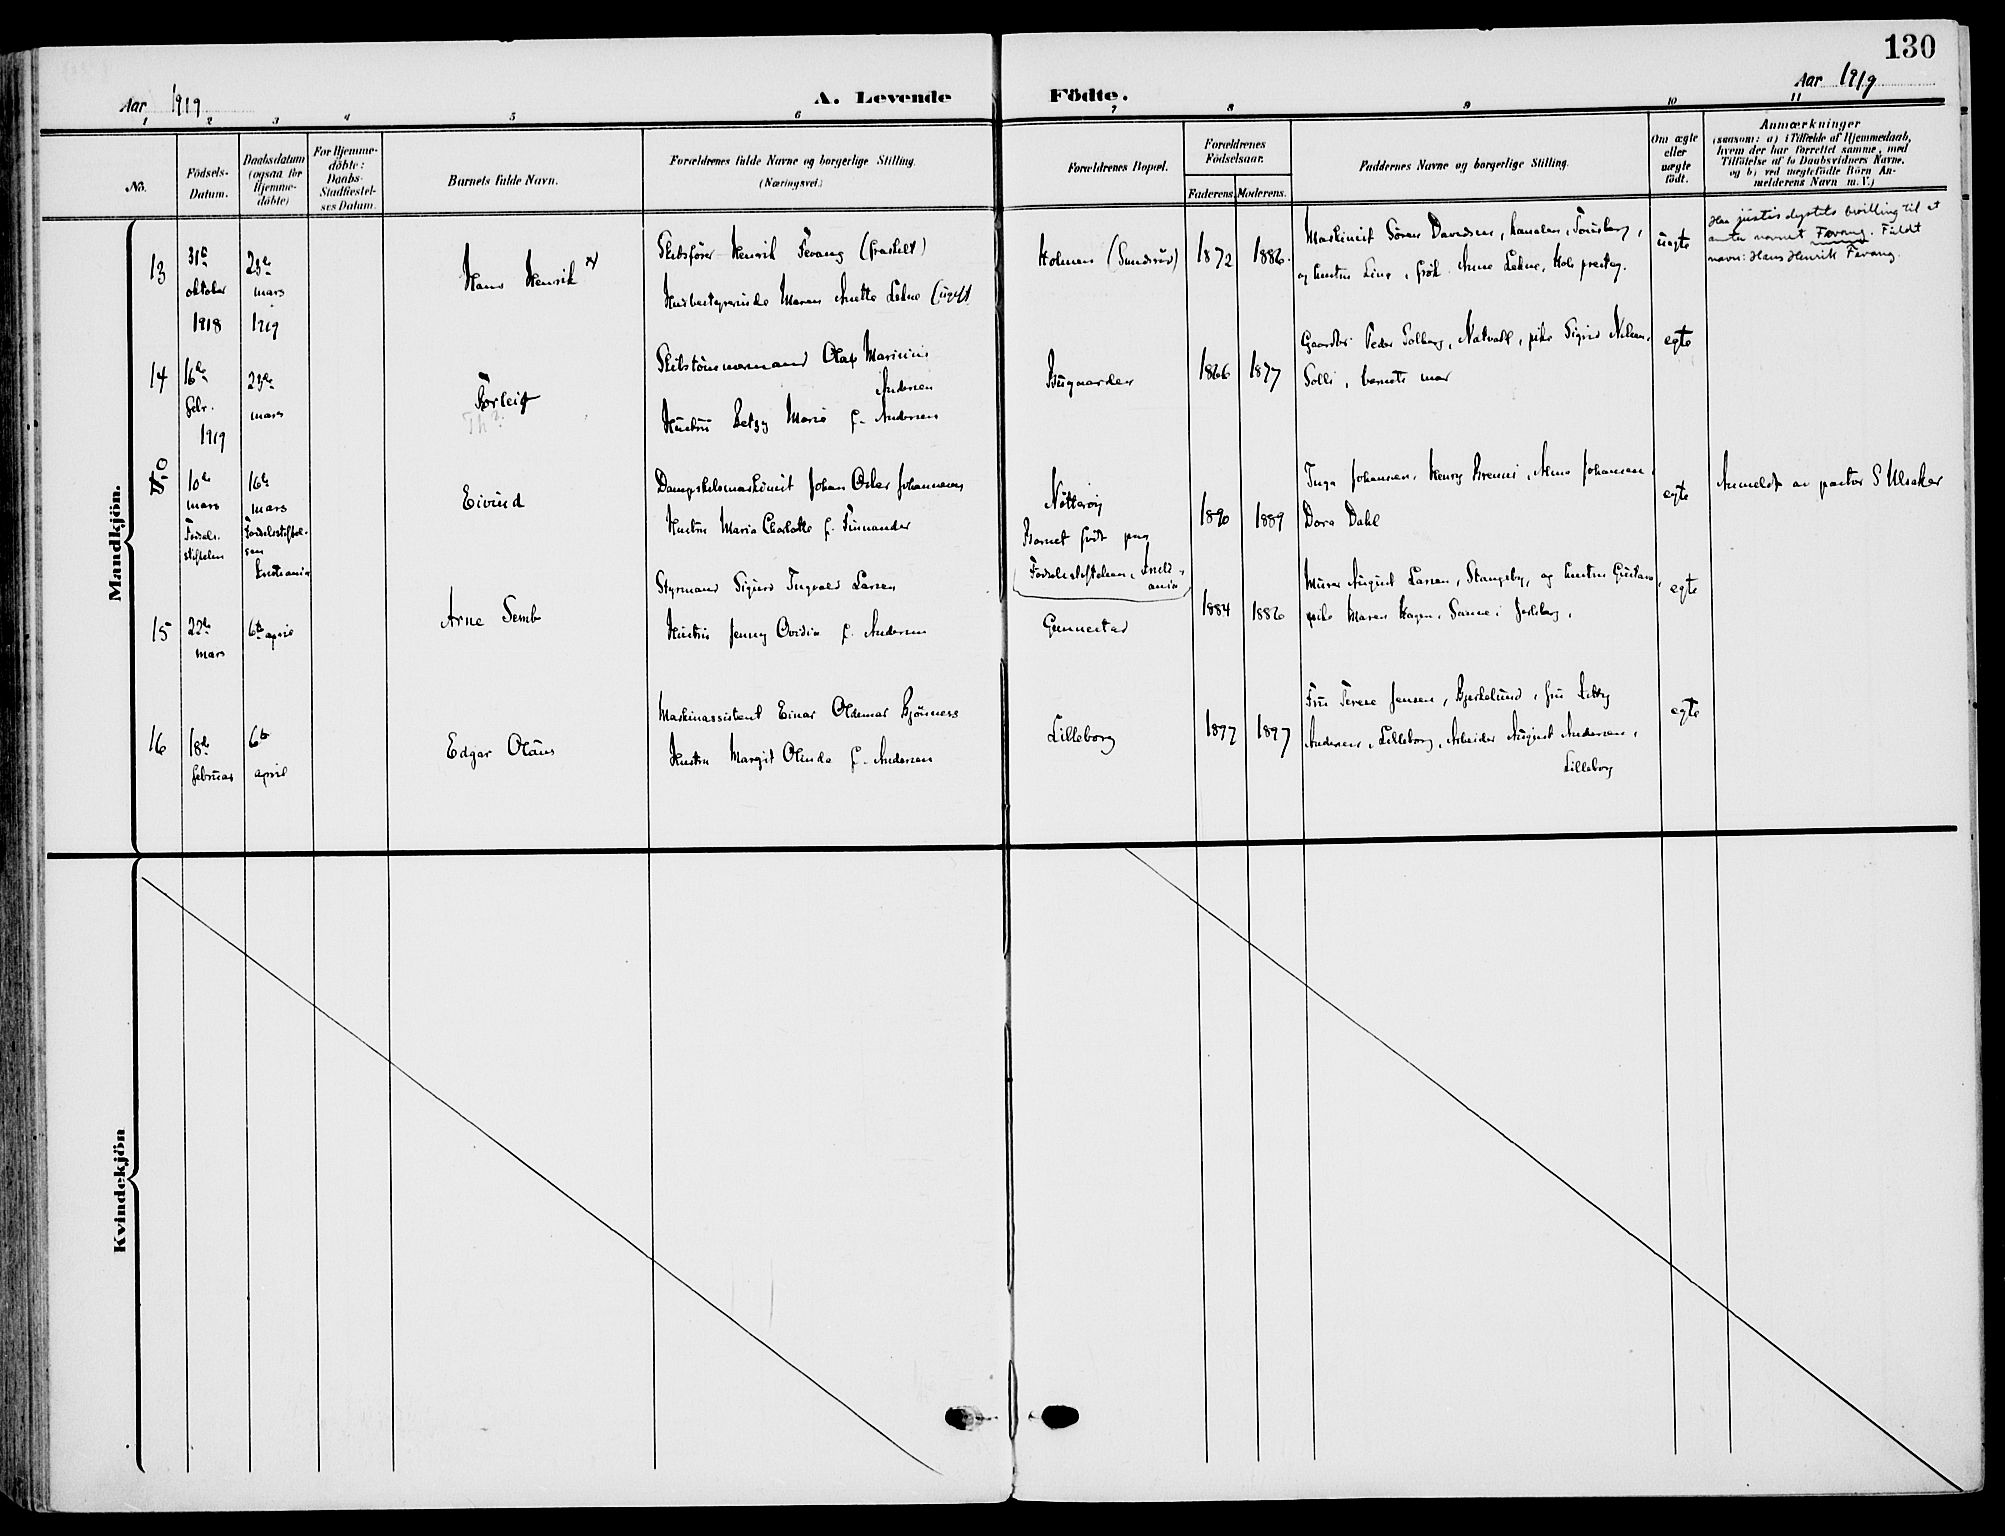 130
Aar 1919
A. Levende Födte.
Aar 1919
1 2 3 4 5 6 7 8 9 10 11
No.
Födsels-
Datum.
Daabsdatum
(ogsaa for
Hjemme-
döbte)
For Hjemme-
döbte:
Daabs-
Stadfæstel-
ses Datum.
Barnets fulde Navn.
Forældrenes fulde Navne og borgerlige Stilling.
(Næringsvei.)
Forældrenes Bopæl.
Forældrenes
Födselsaar.
Faderens. Moderens.
Faddernes Navne og borgerlige Stilling.
Om ægte
eller
uægte
födt.
Anmærkninger
(saasom: a) i Tilfælde af Hjemmedaab,
hvem der har forrettet samme, med
Tilföielse af to Daabsvidners Navne,
og b) ved uægtefödte Börn An-
melderens Navn m. V.)
Mandkjön.
13
31te
oktober
1918
23de
mars
1919
Hans Henrik x)
Skibsfører Henrik Fevang (fraskilt)
Husbestyrerinde Maren Anette Lekne (ugift
Holmen (Sundrød)
1872 1886.
Maskinist Søren Davidsen, kanalen, Tønsberg,
og hustru Lina, frøk. Anne Lekne, Hols prestegj.
uegte
Har justisdeptets bevilling til at
anta navnet Fevang. Fuldt
navn: Hans Henrik Fevang.
14
16de
febr.
1919
23de
mars
Torleif
Th?
Skibstømmermand Olaf Marinius
Andersen
Hustru Betzy Marie f. Andersen
Bugaarden
1866 1877
Gaardbr. Peder Solberg, Natvall, pike Sigrid Nilsen,
Solli, barnets mor
egte
10de
mars
Fødsels-
stiftelsen
16de
mars
Fødselsstiftel-
sen
Kristiania
Eivind
Dampskibsmaskinist Johan Oskar Johannesen
Hustru Maria Charlotte f. Finnander
Nøtterøy
Barnet født paa
Fødselsstiftelsen, Kristi-
ania
1890 1889
Inga Johansen, Henry Brenni, Alma Johansen,
Dora Dahl
egte
Anmeldt av pastor S Ulsaker
15
22de
mars
6te april
Arne Sembo
Styrmand Sigurd Ingvald Larsen
Hustru Jenny Ovidia f. Andersen
Gunnestad
1884 1886
Murer August Larsen, Stangeby, og hustru Gustava,
pike Maren Hagen, Sanne i Jarlsberg,
egte
16
18de
februar
6te
april
Edgar Olaus
Maskinassistent Einar Oldemar Bjønness
Hustru Margit Olinda f. Andersen
Lilleborg
1897 1897
Fru Terese Jensen, Bjerkelund, fru Kitty
Andersen, Lilleborg, Arbeider August Andersen,
Lilleborg
egte
Kvindekjön